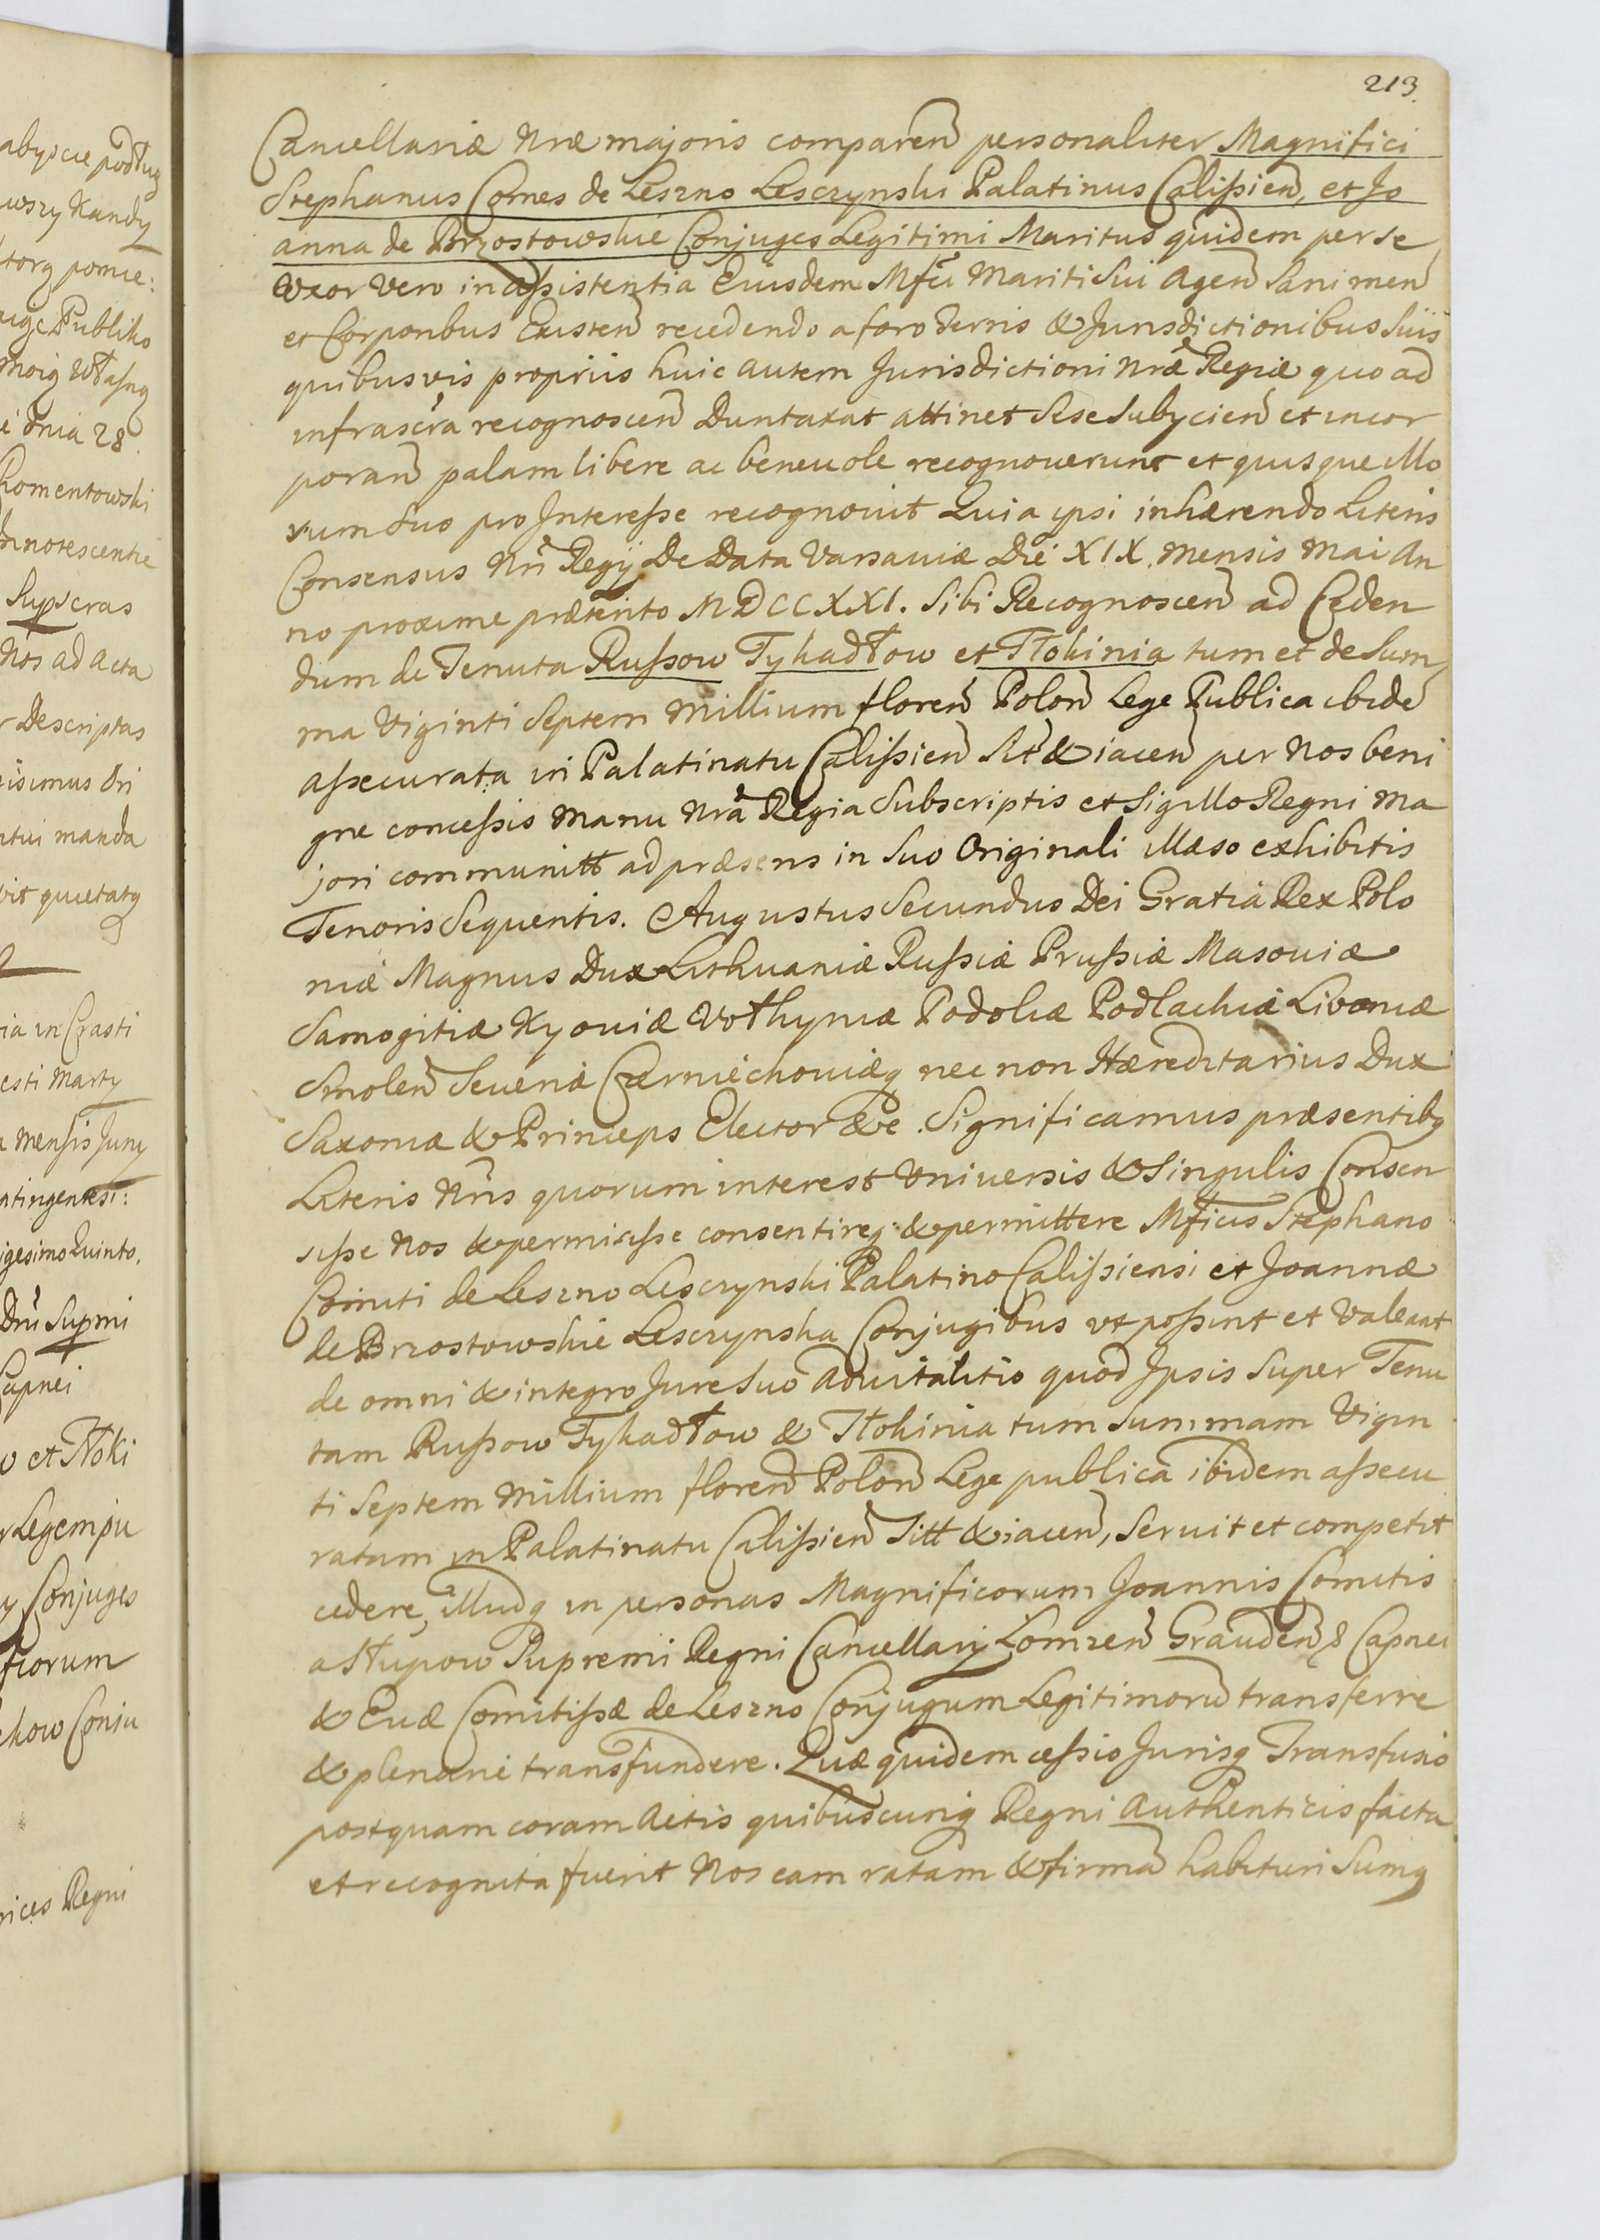 abyscie podług
wszy Kandy
torg pomie:
Publiko
moią Własną
i dnia 28
homentowski
nnotescentiæ
Supscras
Nos ad acta
Descriptas
isimus Ori
ntui manda
vit quietatą
ia in Crasti
esti Marty
mensis Juny
atingentesi:
igesimo Quinto.
Dni Supmi
Capnei
et Tłoki
Legem pu
Conjuges
ficorum
chow Conju
rices Regni
213.
Cancellariæ Nræ majoris comparen personaliter Magnifici
Stephanus Comes de Leszno Lesczynski Palatinus Calissien, et Jo
anna de Brzostowskie Conjuges Legitimi Maritus quidem per se
Uxor Vero in assistentia Eiusdem Mfci Mariti Sui Agen Sani men
et Corporibus Existen recedendo a foro Terris & Jurisdictionibus Suis
quibusvis propriis huic autem Jurisdictioni Nræ Regiæ quo ad
infrascra recognoscen Duntaxat attinet Sese Subycien et incor
poran palam libere ac beneuole recognouerunt et quisque illo
rum Suo pro Interesse recognouit Quia ipsi inhærendo Literis
Consensus Nri Regÿ De Data Varsauiæ Die XIX. mensis Mai An
no proxime præterito MDCCXXI. Sibi Recognoscen ad Ceden
dum de Tenuta Russow Tykadłow et Tłokinia tum et de Sum
ma Viginti Septem Millium floren Polon Lege Publica ibide
assecurata in Palatinatu Calissien Sit & iacen per Nos beni
gne concessis Manu Nra Regia Subscriptis et Sigillo Regni Ma
jori communitt ad præsens in Suo Originali illæso exhibitis
Tenoris Sequentis. Augustus Secundus Dei Gratia Rex Polo
niæ Magnus Dux Lithuaniæ Russiæ Prussiæ Masouiæ
Samogitiæ Kyouiæ Vołhyniæ Podoliæ Podlachiæ Livoniæ
Smolen Seueriæ Czerniechouiæq nec non Hæreditarius Dux
Saxoniæ & Princeps Elector &c. Significamus præsentibq
Literis Nris quorum interest Universis & Singulis Consen
sisse Nos & permisisse consentireq & permittere Mficis Stephano
Comiti de Leszno Lesczynski Palatino Calissiensi et Joannæ
de Brzostowskie Lesczynska Conjugibus ut possint et Valeant
de omni & integro Jure Suo Aduitalitio quod Ipsis Super Tenu
tam Russow Tykadłow & Tłokinia tum Summam Vigin
ti Septem Millium floren Polon Lege publica ibidem assecu
ratam in Palatinatu Calissien Sitt & iacen, Seruit et competit
cedere, illudq in personas Magnificorum Joannis Comitis
a Słupow Supremi Regni Cancellarij Lomzen Grauden & Capnei
& Euæ Comitissæ de Leszno Conjugum Legitimoru transferre
& plenarie transfundere. Quæ quidem cessio Jurisq Transfusio
postquam coram Actis quibuscunq Regni Authenticis facta
et recognita fuerit Nos eam ratam & firma habituri Sumq